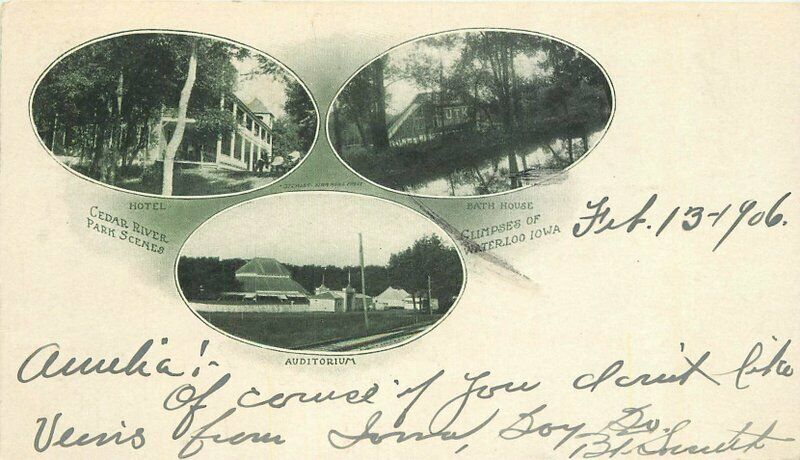 HOTEL
BATH HOUSE
CEDAR RIVER
PARK SCENES
GLIMPSES OF
WATERLOO IOWA
AUDITORIUM
Feb. 13-1906.
Amelia!-
Of course if You don't like
Veiws from Iowa, Say So.
Smith